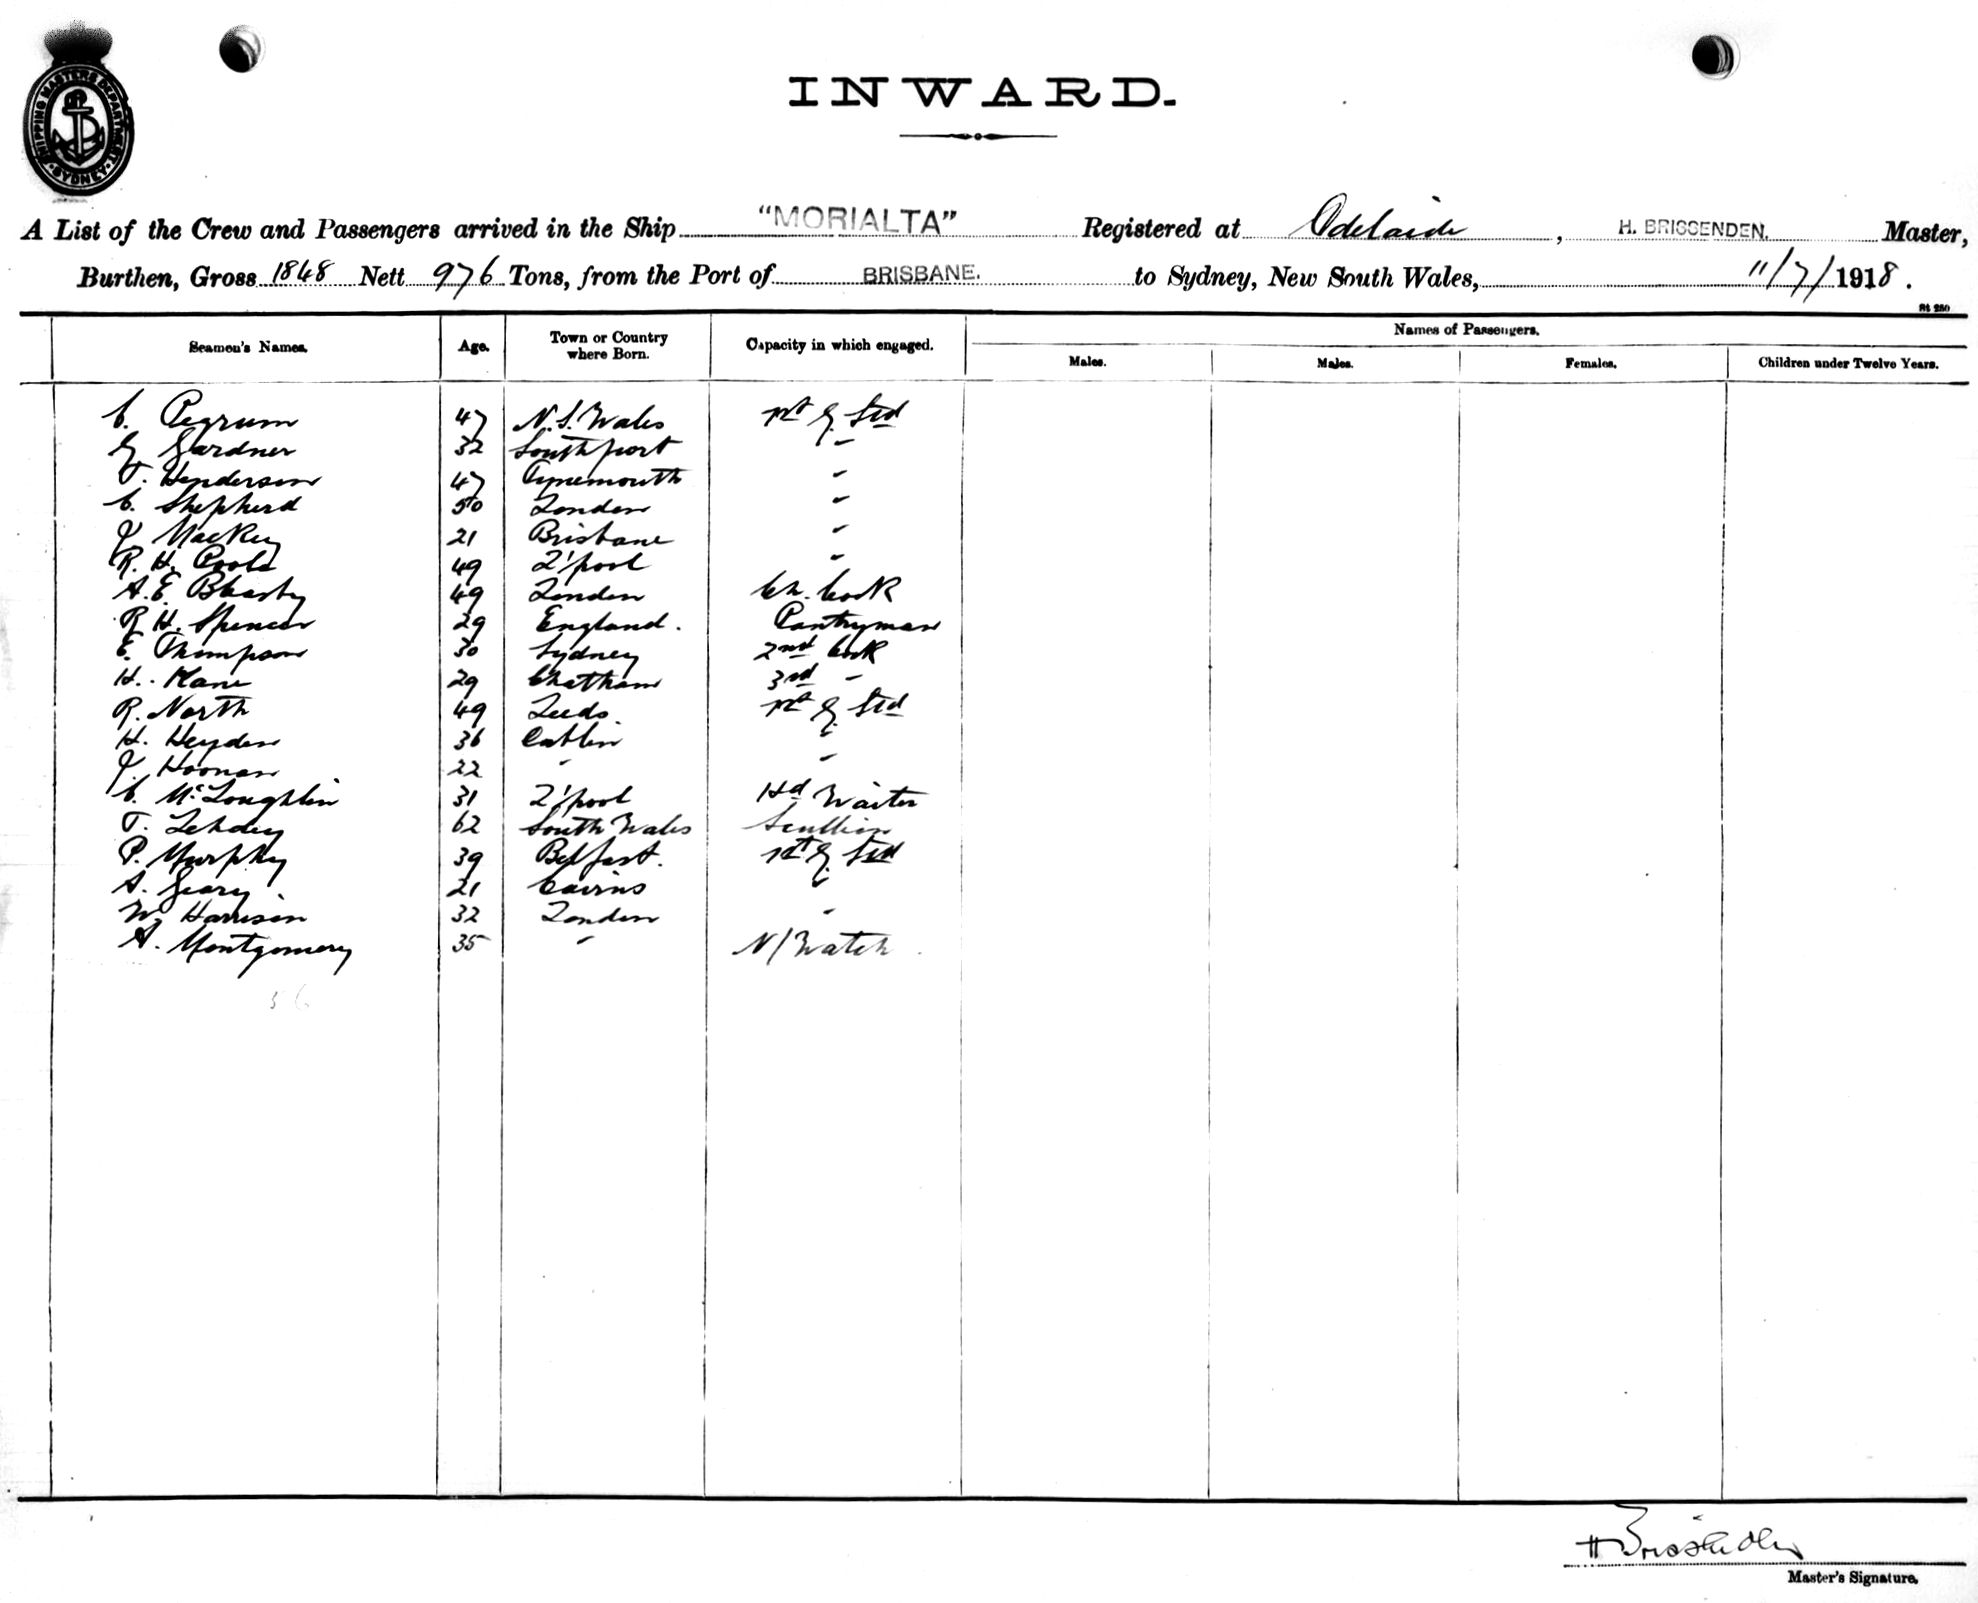 SHIPPING MASTERS DEPARTMENT SYDNEY
INWARD.
A List of the Crew and Passengers arrived in the Ship "MORIALTA" Registered at Adelaide, H. BRISSENDEN, Master,
Burthen, Gross 1848 Nett 976 Tons, from the Port of BRISBANE. to Sydney, New South Wales, 11/7/1918.
St 250
Seamen's Names. Age. Town or Country where Born. Capacity in which engaged. Names of Passengers.
Males. Males. Females. Children under Twelve Years.
C. Pegrum 47 N.S. Wales 1st G. Std
G Gardner 32 Southport "
T. Henderson 47 Tynemouth "
C. Shepherd 50 London "
J. Mackey 21 Brisbane "
R. H. Poole 49 L'pool "
A. E. Bleasby 49 London Ch. Cook
R H. Spencer 29 England. Pantryman
E. Thompson 30 Sydney 2nd Cook
H. Kane 29 Chatham 3rd "
R. North 49 Leeds. 1st G. Std
H. Heyden 36 "
J. Hoonan 22 " "
C. McLoughlin 31 L'pool Hd Waiter
T. Lehdey 62 South Wales Scullion
P. Murphy 39 Belfast. 1st G. Std
A. Geary 21 Cairns "
W. Harrison 32 London "
A. Montgomery 35 " N/Watch
56
H Brissenden
Master's Signature.